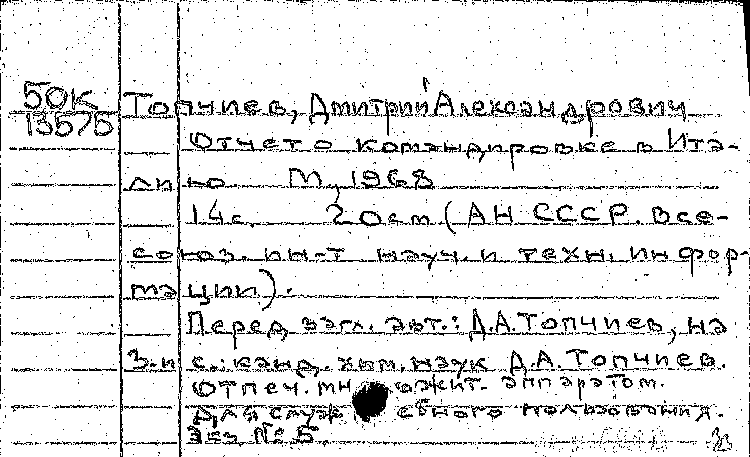 50К
13575
Топчиев, Дмитрий Александрович
Отчет о командировке в Ита-
лию. М., 1968
14с. 20см (АН СССР. Все-
союз. ин-т науч. и техн. инфор-
мации).
Перед загл. авт.: Д.А.Топчиев, на
3-й с.: канд. хим. наук Д.А.Топчиев.
Отпеч. множит. аппаратом.
Для служебного пользования.
Экз. № 5.